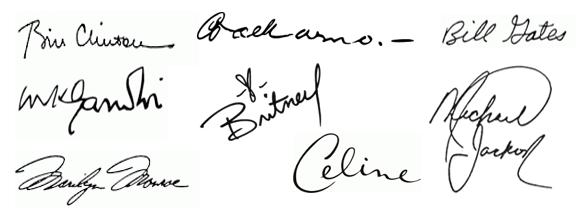 Bill Clinton
Bill Gates
MKGandhi
Britney
Michael
Jackson
Marilyn Monroe
Celine